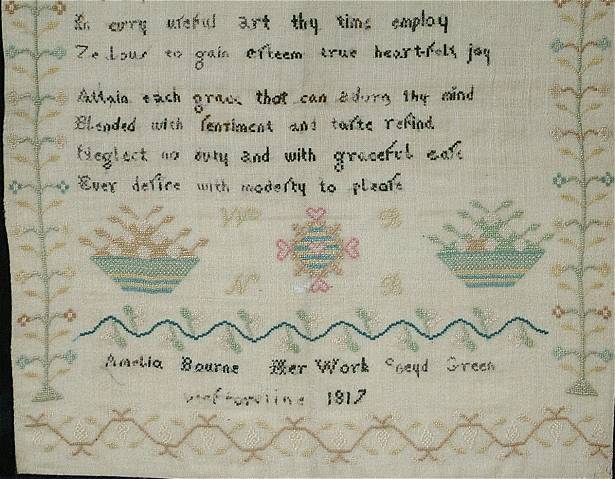 In evry useful art thy time employ
Zealous to gain esteem true heartfelt joy
Attain each grace that can adorn thy mind
Blended with sentiment and taste refind
Neglect no duty and with graceful ease
Ever desire with modesty to please
B
N B
Amelia Bourne Her Work Sneyd Green
1817